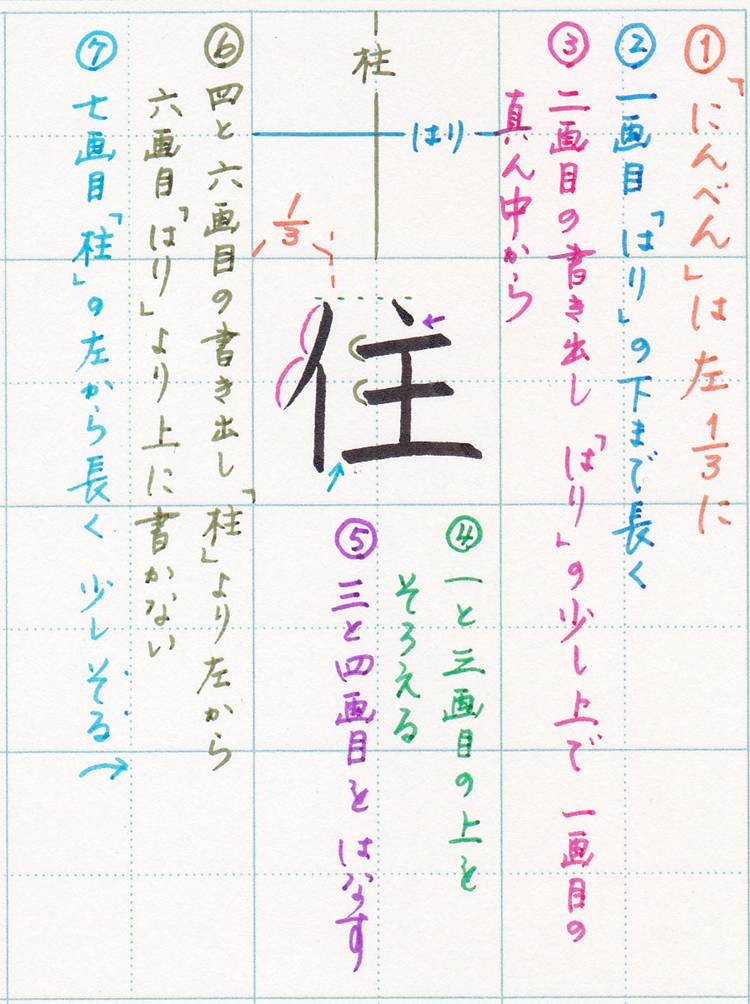 ①「にんべん」は左1/3に
②一画目「はり」の下まで長く
③二画目の書き出し「はり」の少し上で 一画目の
真ん中から
柱
はり
1/3
住
④一と三画目の上を
そろえる
⑤三と四画目をはなす
⑥四と六画目の書き出し「柱」より左から
六画目「はり」より上に書かない
⑦七画目「柱」の左から長く 少しそる→